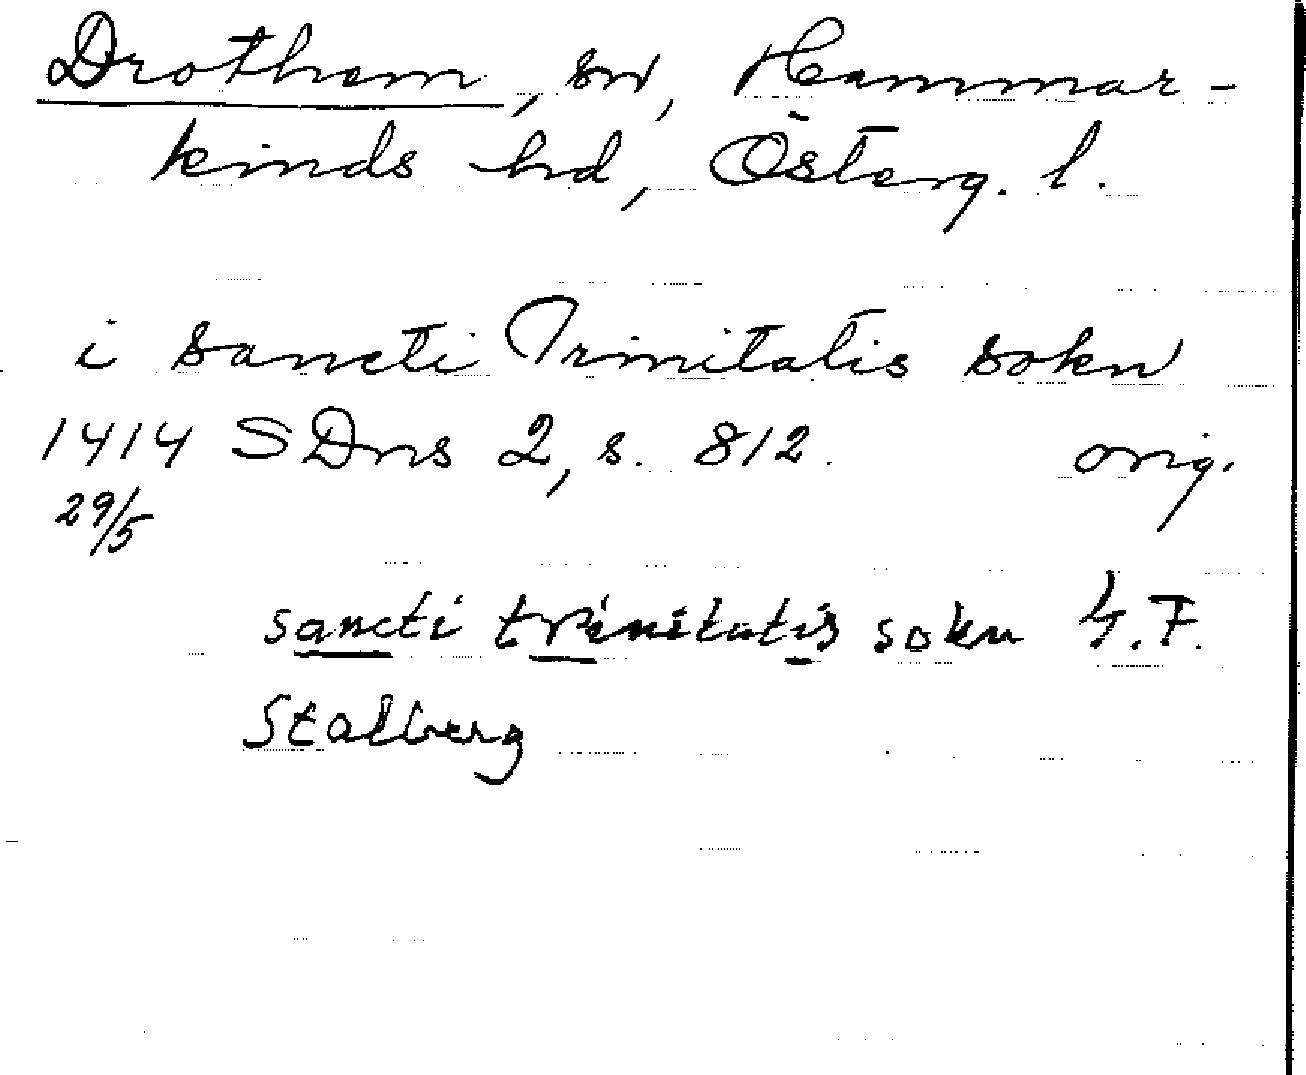 Drothem, sn, Hammar-
kinds hd, Österg. l.
i Sancti Trinitatis sokn
1414 SDns 2, s. 812. orig.
29/5
sancti trinitatis sokn G.F.
Stalberg